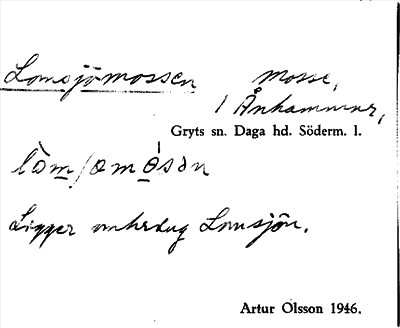 Lomsjömossen mosse,
1 Ånhammar,
Gryts sn. Daga hd. Söderm. l.
Ligger omkring Lomsjön.
Artur Olsson 1946.